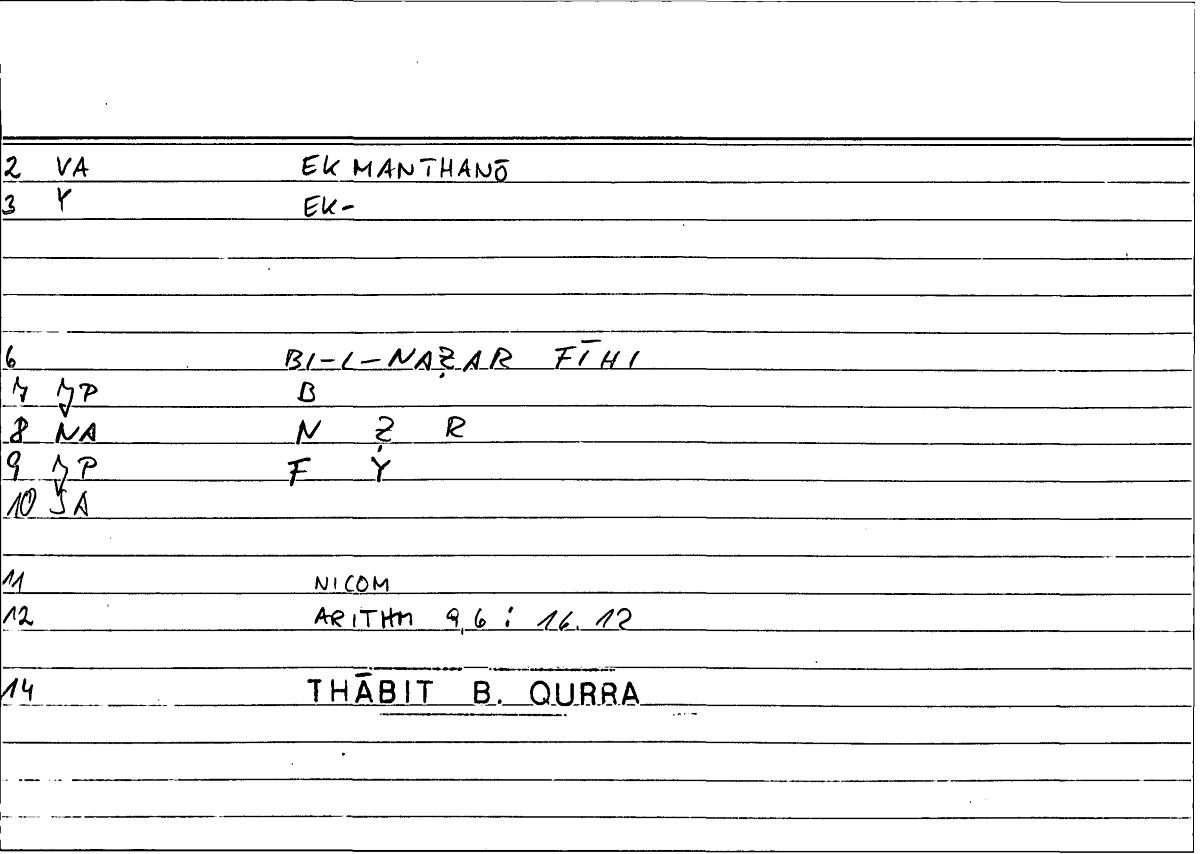 2 VA EK MANTHANŌ
3 Y EK-
6 BI-L-NAẒAR FĪHI
7 JP B
8 NA N Ẓ R
9 JP F Y
10 JA
11 NICOM
12 ARITHM 9,6 : 16.12
14 THĀBIT B. QURRA